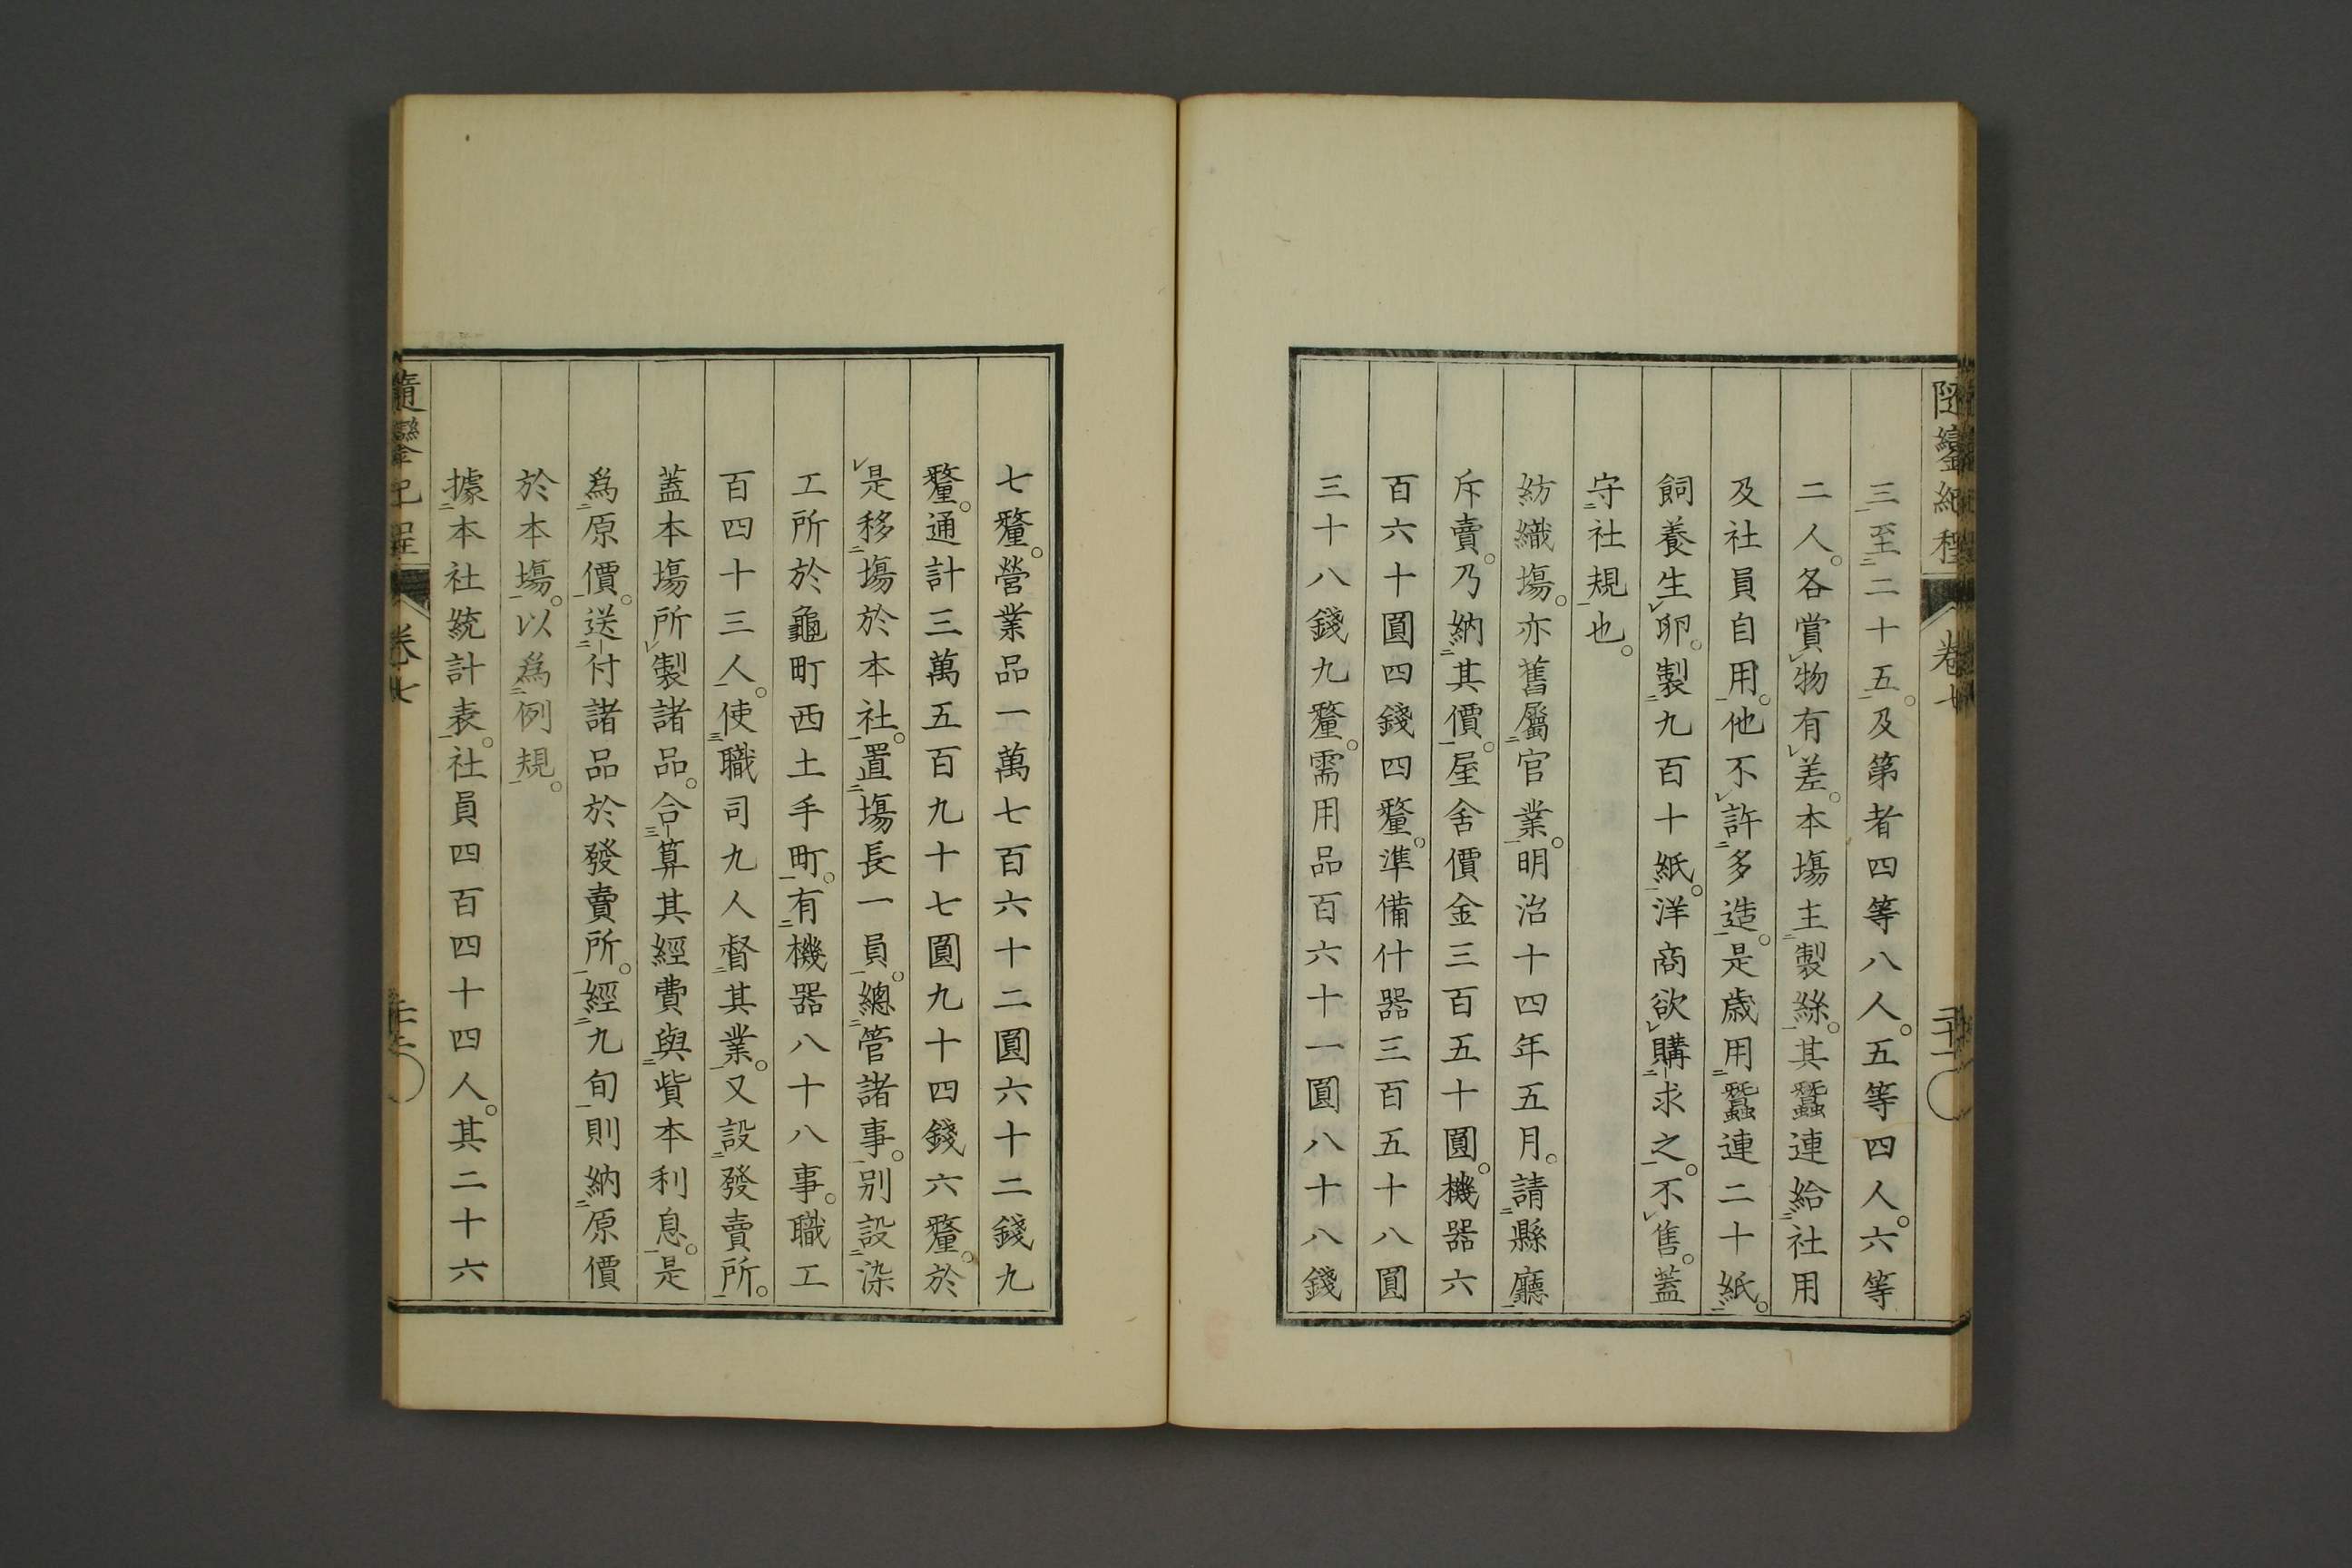 隨鑾紀程
卷七
三至二十五。及第者四等八人。五等四人。六等
二人。各賞物有差。本塲主製絲。其蠶連給社用
及社員自用。他不許多造。是歳用蠶連二十紙。
飼養生卵。製九百十紙。洋商欲購求之。不售。蓋
守社規也。
紡織塲。亦舊屬官業。明治十四年五月。請縣廳
斥賣。乃納其價。屋舍價金三百五十圓。機器六
百六十圓四錢四釐。準備什器三百五十八圓
三十八錢九釐。需用品百六十一圓八十八錢
七釐。營業品一萬七百六十二圓六十二錢九
釐。通計三萬五百九十七圓九十四錢六釐。於
是移塲於本社。置塲長一員。總管諸事。別設染
工所於龜町西土手町。有機器八十八事。職工
百四十三人。使職司九人督其業。又設發賣所。
蓋本塲所製諸品。合算其經費與貲本利息。是
爲原價。送付諸品於發賣所。經九旬則納原價
於本塲。以爲例規。
據本社統計表。社員四百四十四人。其二十六
隨鑾紀程
卷七